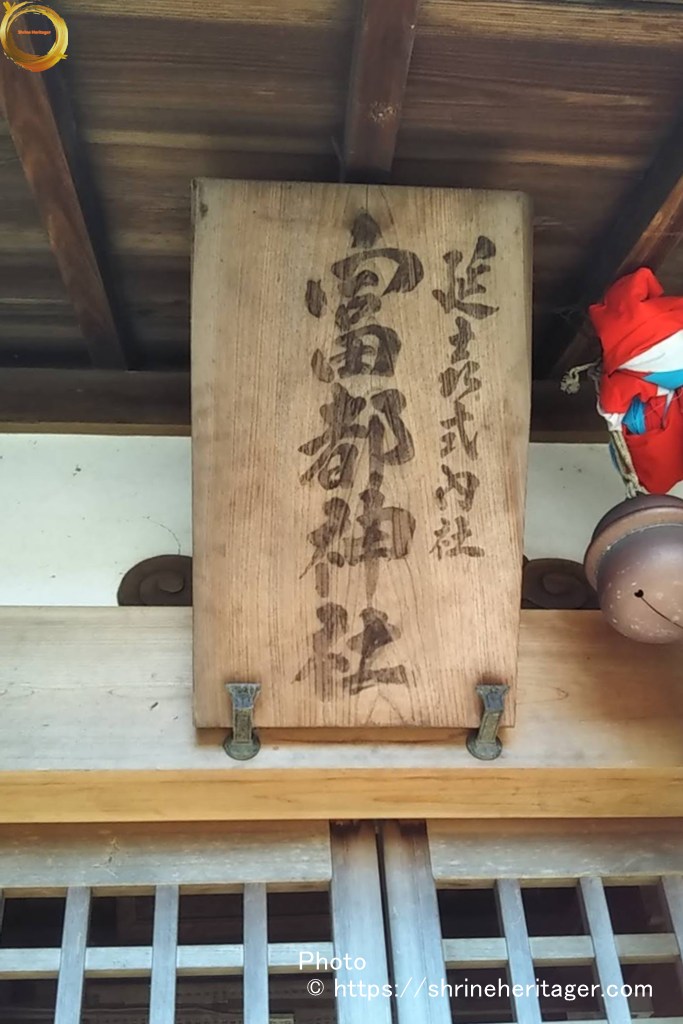 Shrine Heritager
延喜式内社
富都神社
Photo
© https://shrineheritager.com